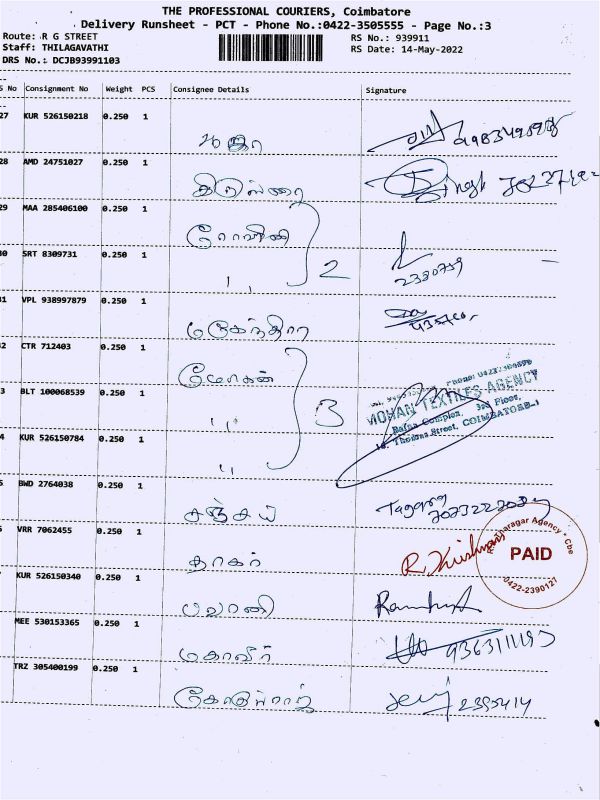 THE PROFESSIONAL COURIERS, Coimbatore
Delivery Runsheet - PCT - Phone No.:0422-3505555 - Page No.:3
Route: R G STREET
Staff: THILAGAVATHI
DRS No.: DCJB93991103
RS No.: 939911
RS Date: 14-May-2022
S No Consignment No Weight PCS Consignee Details Signature
27 KUR 526150218 0.250 1
28 AMD 24751027 0.250 1
29 MAA 285406100 0.250 1
30 SRT 8309731 0.250 1
,, 2 2380759
31 VPL 938997879 0.250 1 மகேந்திரா
32 CTR 712403 0.250 1 மோகன்
3 BLT 100068539 0.250 1
,, 3
MOHAN TEXTILES AGENCY
Rafna Complex, 3rd Floor,
Thomas Street, COIMBATORE-1
4 KUR 526150784 0.250 1
,,
5 BWD 2764038 0.250 1 சஞ்சய்
VRR 7062455 0.250 1 தாகர் R. Krishnan
PAID
0422-2390127
KUR 526150340 0.250 1 பவானி
MEE 530153365 0.250 1 மகாவீர்
TRZ 305400199 0.250 1